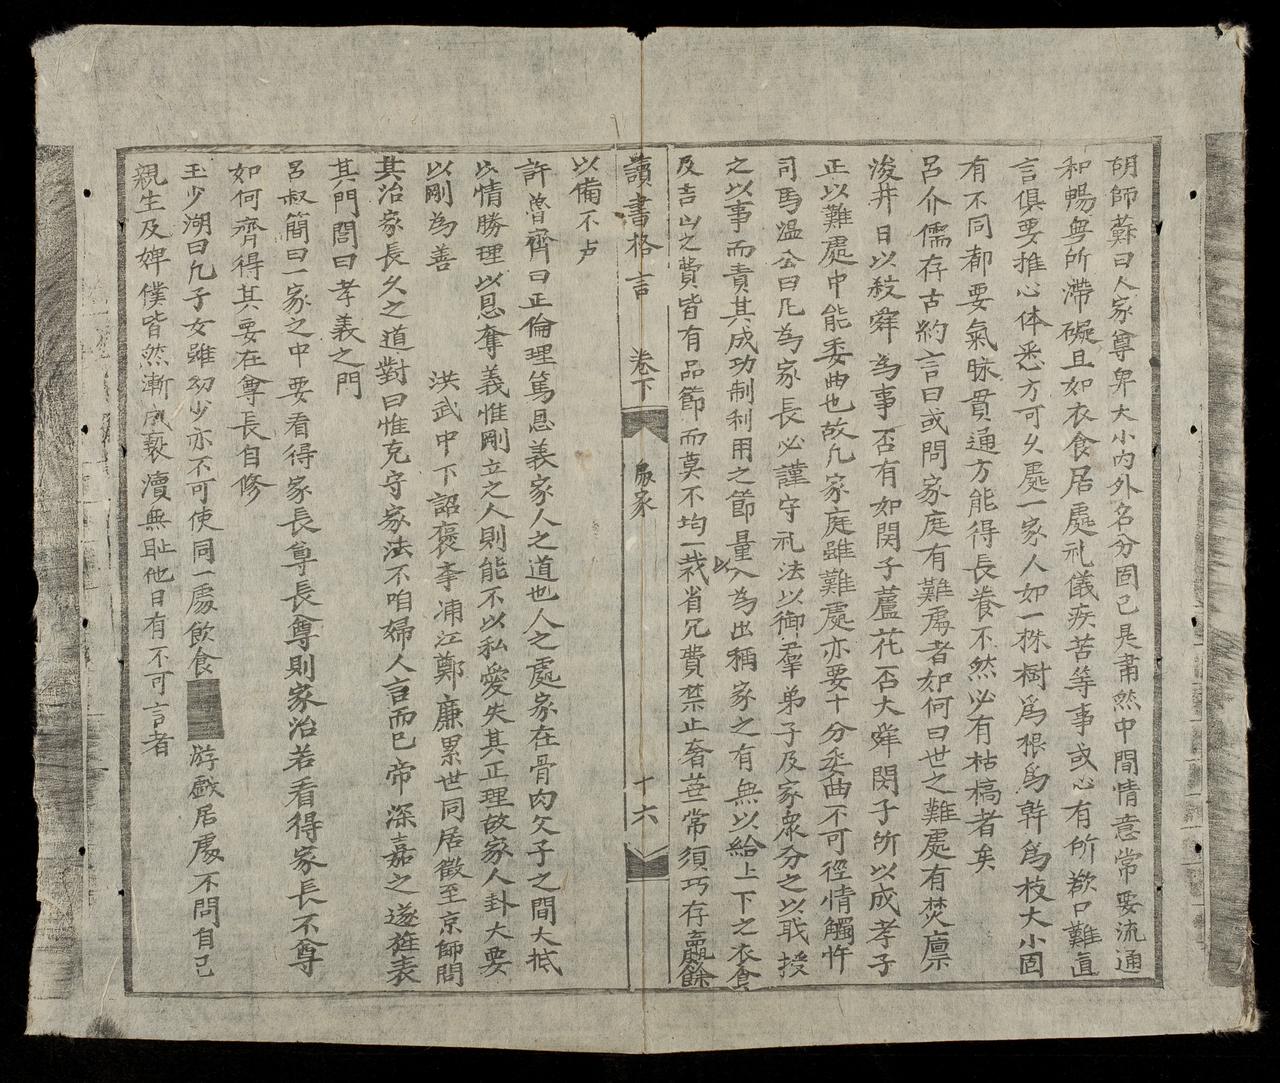 胡師蘇曰人家尊卑大小内外名分固已是肅然中間情意常要流通
和暢毋所滯礙且如衣食居處礼儀疾苦等事或心有所欲口難直
言俱要推心体悉方可久處一家人如一株樹爲根爲幹爲枝大小固
有不同都要氣脉貫通方能得長養不然必有枯槁者矣
呂介儒存古約言曰或問家庭有難處者如何曰世之難處有焚廪
浚井日以殺舜為事否有如閔子蘆花否大舜閔子所以成孝子
正以難處中能委曲也故凡家庭雖難處亦要十分委曲不可徑情觸忤
司馬温公曰凡為家長必謹守礼法以御羣弟子及家衆分之以職授
之以事而責其成功制利用之節量入以為出稱家之有無以給上下之衣食
及吉凶之費皆有品節而莫不均一裁省冗費禁止奢華常須巧存贏餘
讀書格言 卷下 處家 十六
以備不虍
許魯齊曰正倫理篤恩義家人之道也人之處家在骨肉父子之間大抵
以情勝理以恩奪義惟剛立之人則能不以私愛失其正理故家人卦大要
以剛為善 洪武中下詔褒奉浦江鄭廉累世同居徵至京師問
其治家長久之道對曰惟克守家法不咱婦人言而已帝深嘉之遂旌表
其門閭曰孝義之門
呂叔簡曰一家之中要看得家長尊長尊則家治若看得家長不尊
如何齊得其要在尊長自修
王少湖曰凡子女雖幼少亦不可使同一處飲食 游戲居處不問自己
親生及婢僕皆然漸成褻瀆無耻他日有不可言者